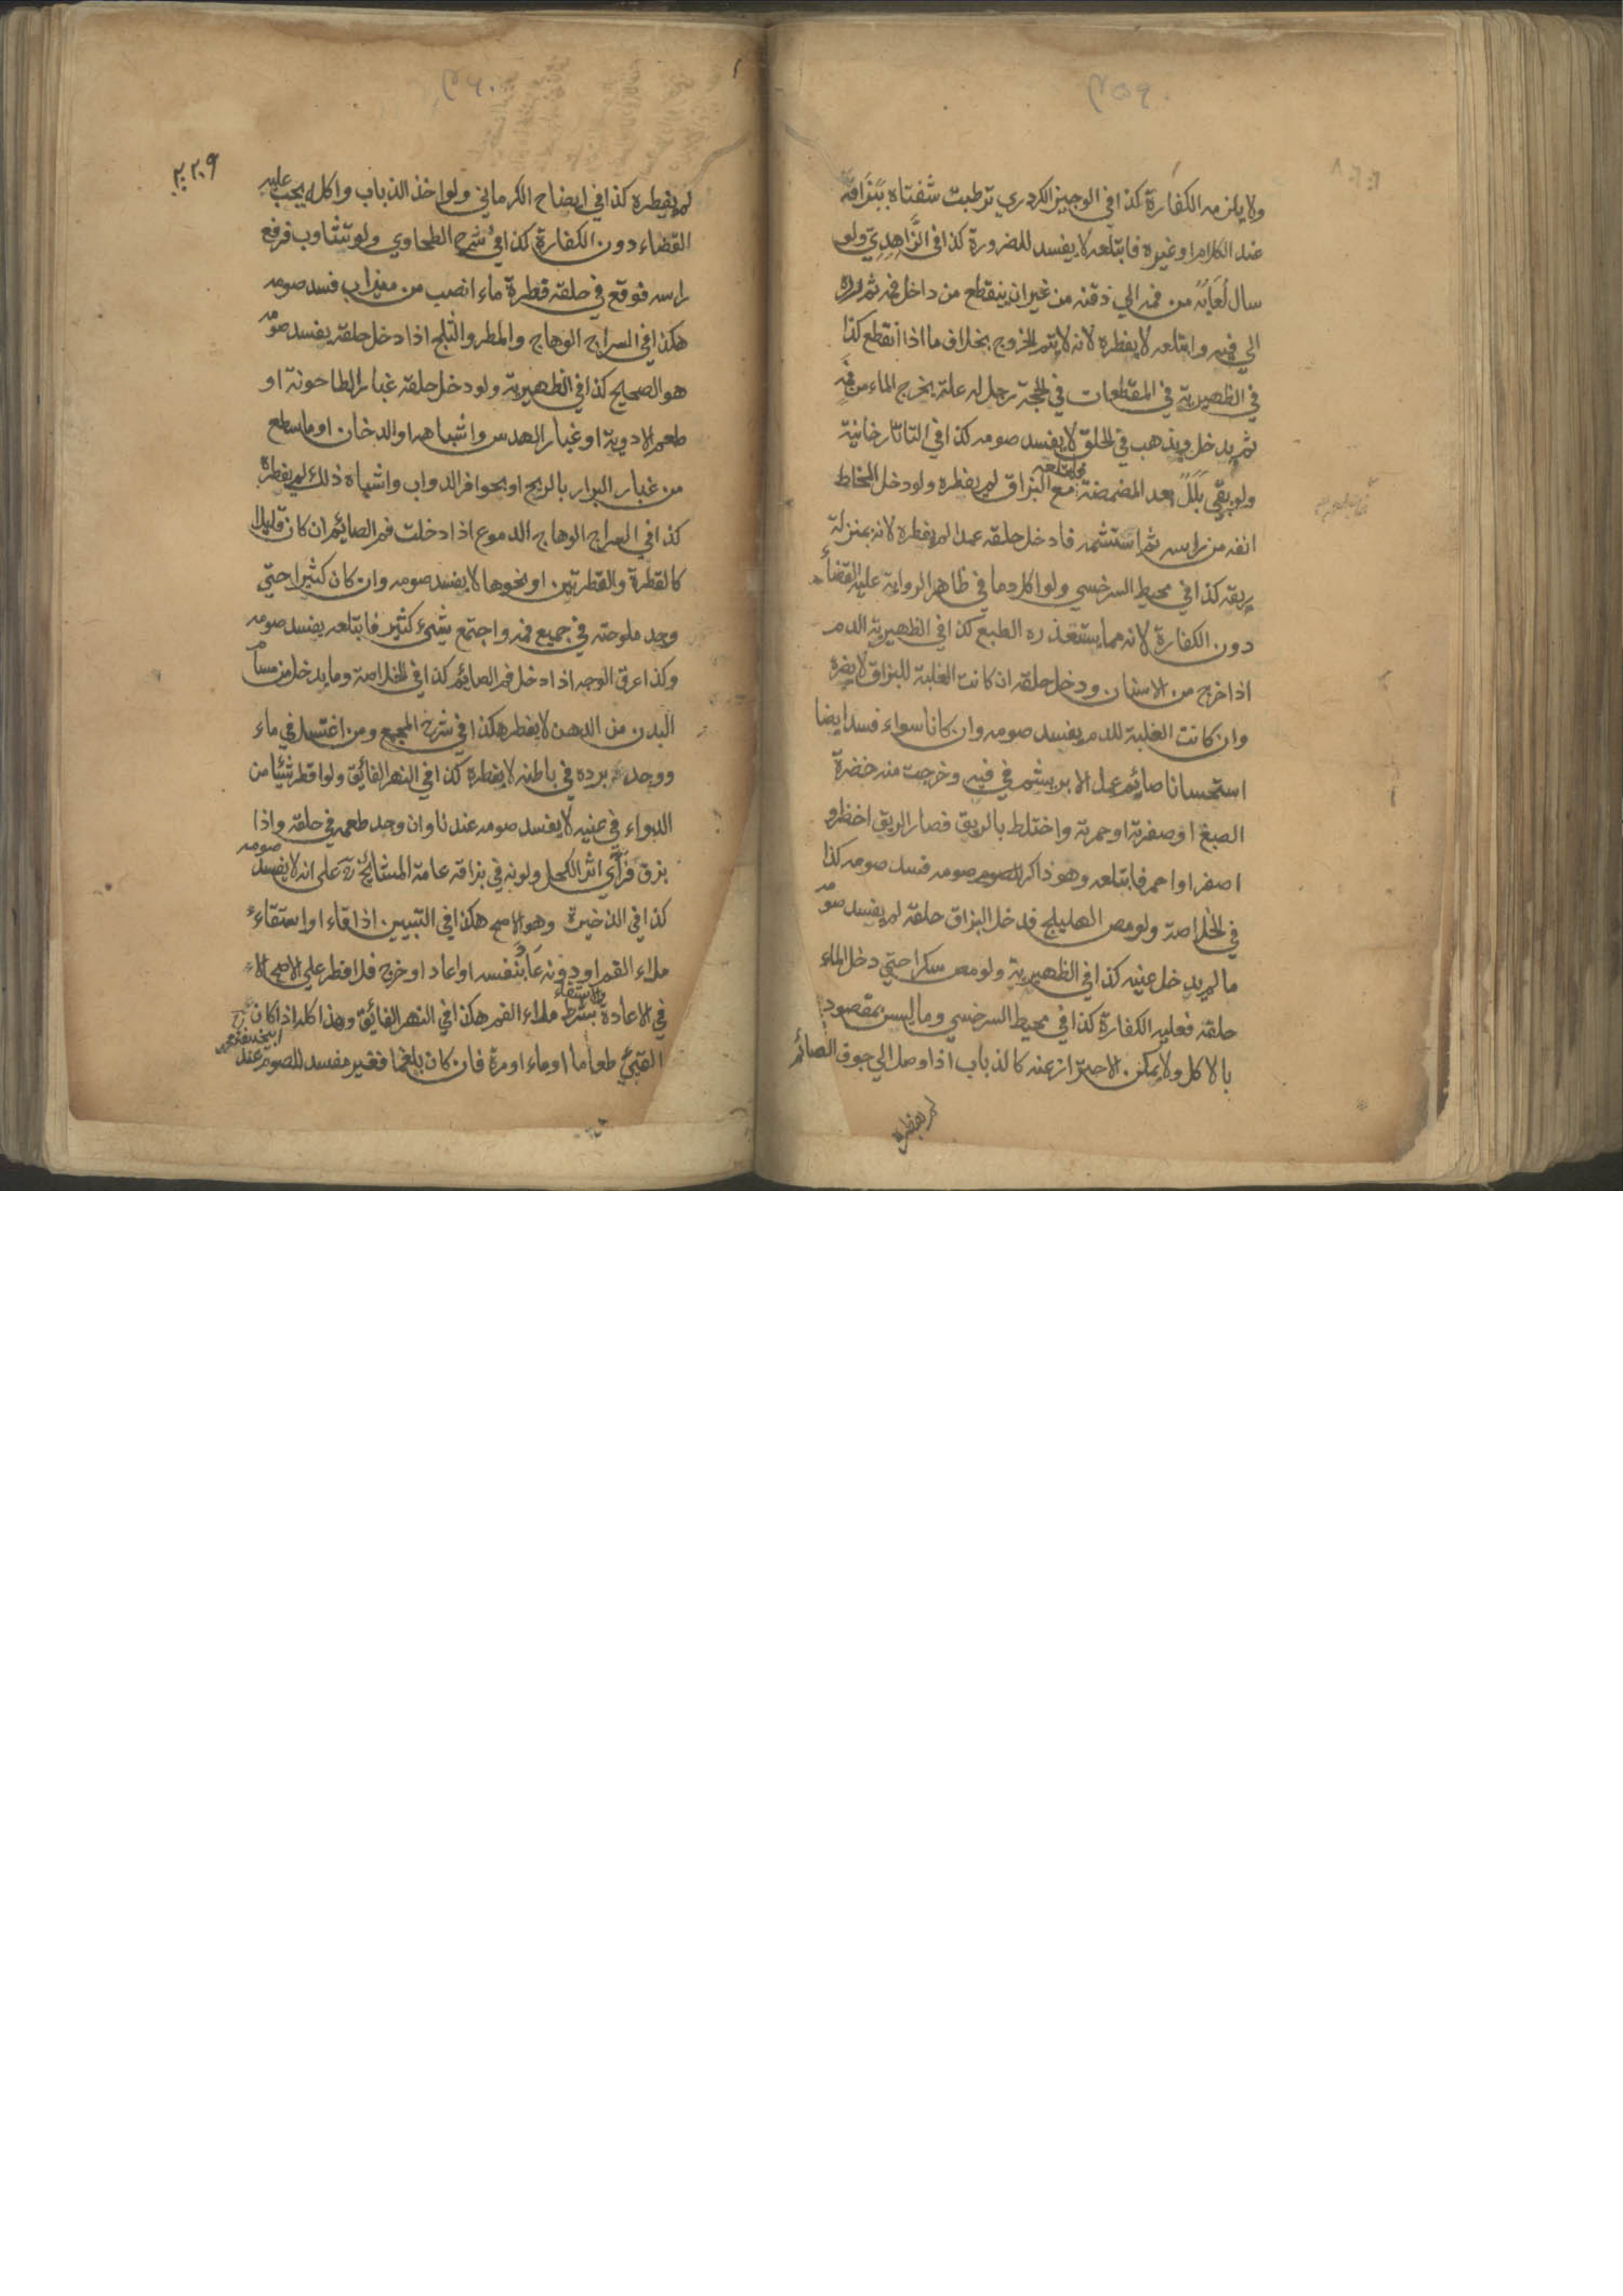 ولا يلزمه الكفارة كذا في الوجيز الكردري ترطبت شفتاه ببزاقه
عند الكلام او غيره فابتلعه لا يفسد للضرورة كذا في الزاهدي ولو
سال لعابه من فمه الي ذقنه من غير ان ينقطع من داخل فمه ثم رده
الي فيه وابتلعه لا يفطره لانه لا يتم الخروج بخلاف ما اذا انقطع كذا
في الظهيرية في المقطعات في الحجة رجل له علة يخرج الماء من فمه
ثم يدخل ويذهب في الحلق لا يفسد صومه كذا في التاتارخانية
ولو بقي بلل بعد المضمضة فابتلعه مع البزاق لم يفطره ولو دخل المخاط
انفه من راسه ثم استشمه فادخل حلقه عمدا لم يفطره لانه بمنزلة
ريقه كذا في محيط السرخسي ولو اكل دما في ظاهر الرواية عليه القضاء
دون الكفارة لانه مما يستقذره الطبع كذا في الظهيرية الدم
اذا خرج من الاسنان ودخل حلقه ان كانت الغلبة للبزاق لا يضره
وان كانت الغلبة للدم يفسد صومه وان كانا سواء فسد ايضا
استحسانا صائم عمل الابريشم في فيه وخرجت منه خضرة
الصبغ او صفرته او حمرته واختلط بالريق فصار الريق اخضر و
اصفر او احمر فابتلعه وهو ذاكر لصومه فسد صومه كذا
في الخلاصة ولو مص الهليلج فدخل البزاق حلقه لم يفسد صومه
ما لم يدخل عنيه كذا في الظهيرية ولو مص سكرا حتي دخل الماء
حلقه فعليه الكفارة كذا في محيط السرخسي وما ليس بمقصود
بالاكل ولا يمكن الاحتراز عنه كالذباب اذا وصل الي جوف الصائم
لم يفطره
٢٢٠٩
لم يفطره كذا في ايضاح الكرماني ولو اخذ الذباب واكله يجب عليه
القضاء دون الكفارة كذا في شرح الطحاوي ولو تثاوب فرفع
راسه فوقع في حلقه قطرة ماء انصب من ميزاب فسد صومه
هكذا في السراج الوهاج والمطر والثلج اذا دخل حلقه يفسد صومه
هو الصحيح كذا في الظهيرية ولو دخل حلقه غبار الطاحونة او
طعم الادوية او غبار الهدس واشباهه او الدخان او ما سطع
من غبار البوار بالريح او بحوافر الدواب واشباه ذلك لم يفطره
كذا في السراج الوهاج الدموع اذا دخلت فم الصائم ان كان قليلا
كالقطرة والقطرتين او نحوها لا يفسد صومه وان كان كثيرا حتي
وجد ملوحته في جميع فمه واجتمع شيء كثير فابتلعه يفسد صومه
وكذا عرق الوجه اذا دخل فم الصائم كذا في الخلاصة وما يدخل من مسام
البدن من الدهن لا يفطر هكذا في شرح المجمع ومن اغتسل في ماء
ووجد برده في باطنه لا يفطره كذا في النهر الفائق ولو اقطر شيئا من
الدواء في عينه لا يفسد صومه عندنا وان وجد طعمه في حلقه واذا
بزق فرأي اثر الكحل ولونه في بزاقه عامة المشائخ علي انه لا يفسد صومه
كذا في الذخيرة وهو الاصح هكذا في التبيين اذا قاء او استقاء
ملاء الفم او دونه عاد بنفسه او اعاد او خرج فلا فطر علي الاصح الا
في الاعادة والاستقاء بشرط ملاء الفم هكذا في النهر الفائق وهذا كله اذا كان
القيئ طعاما او ماء او مرة فان كان بلغما فغير مفسد للصوم عند